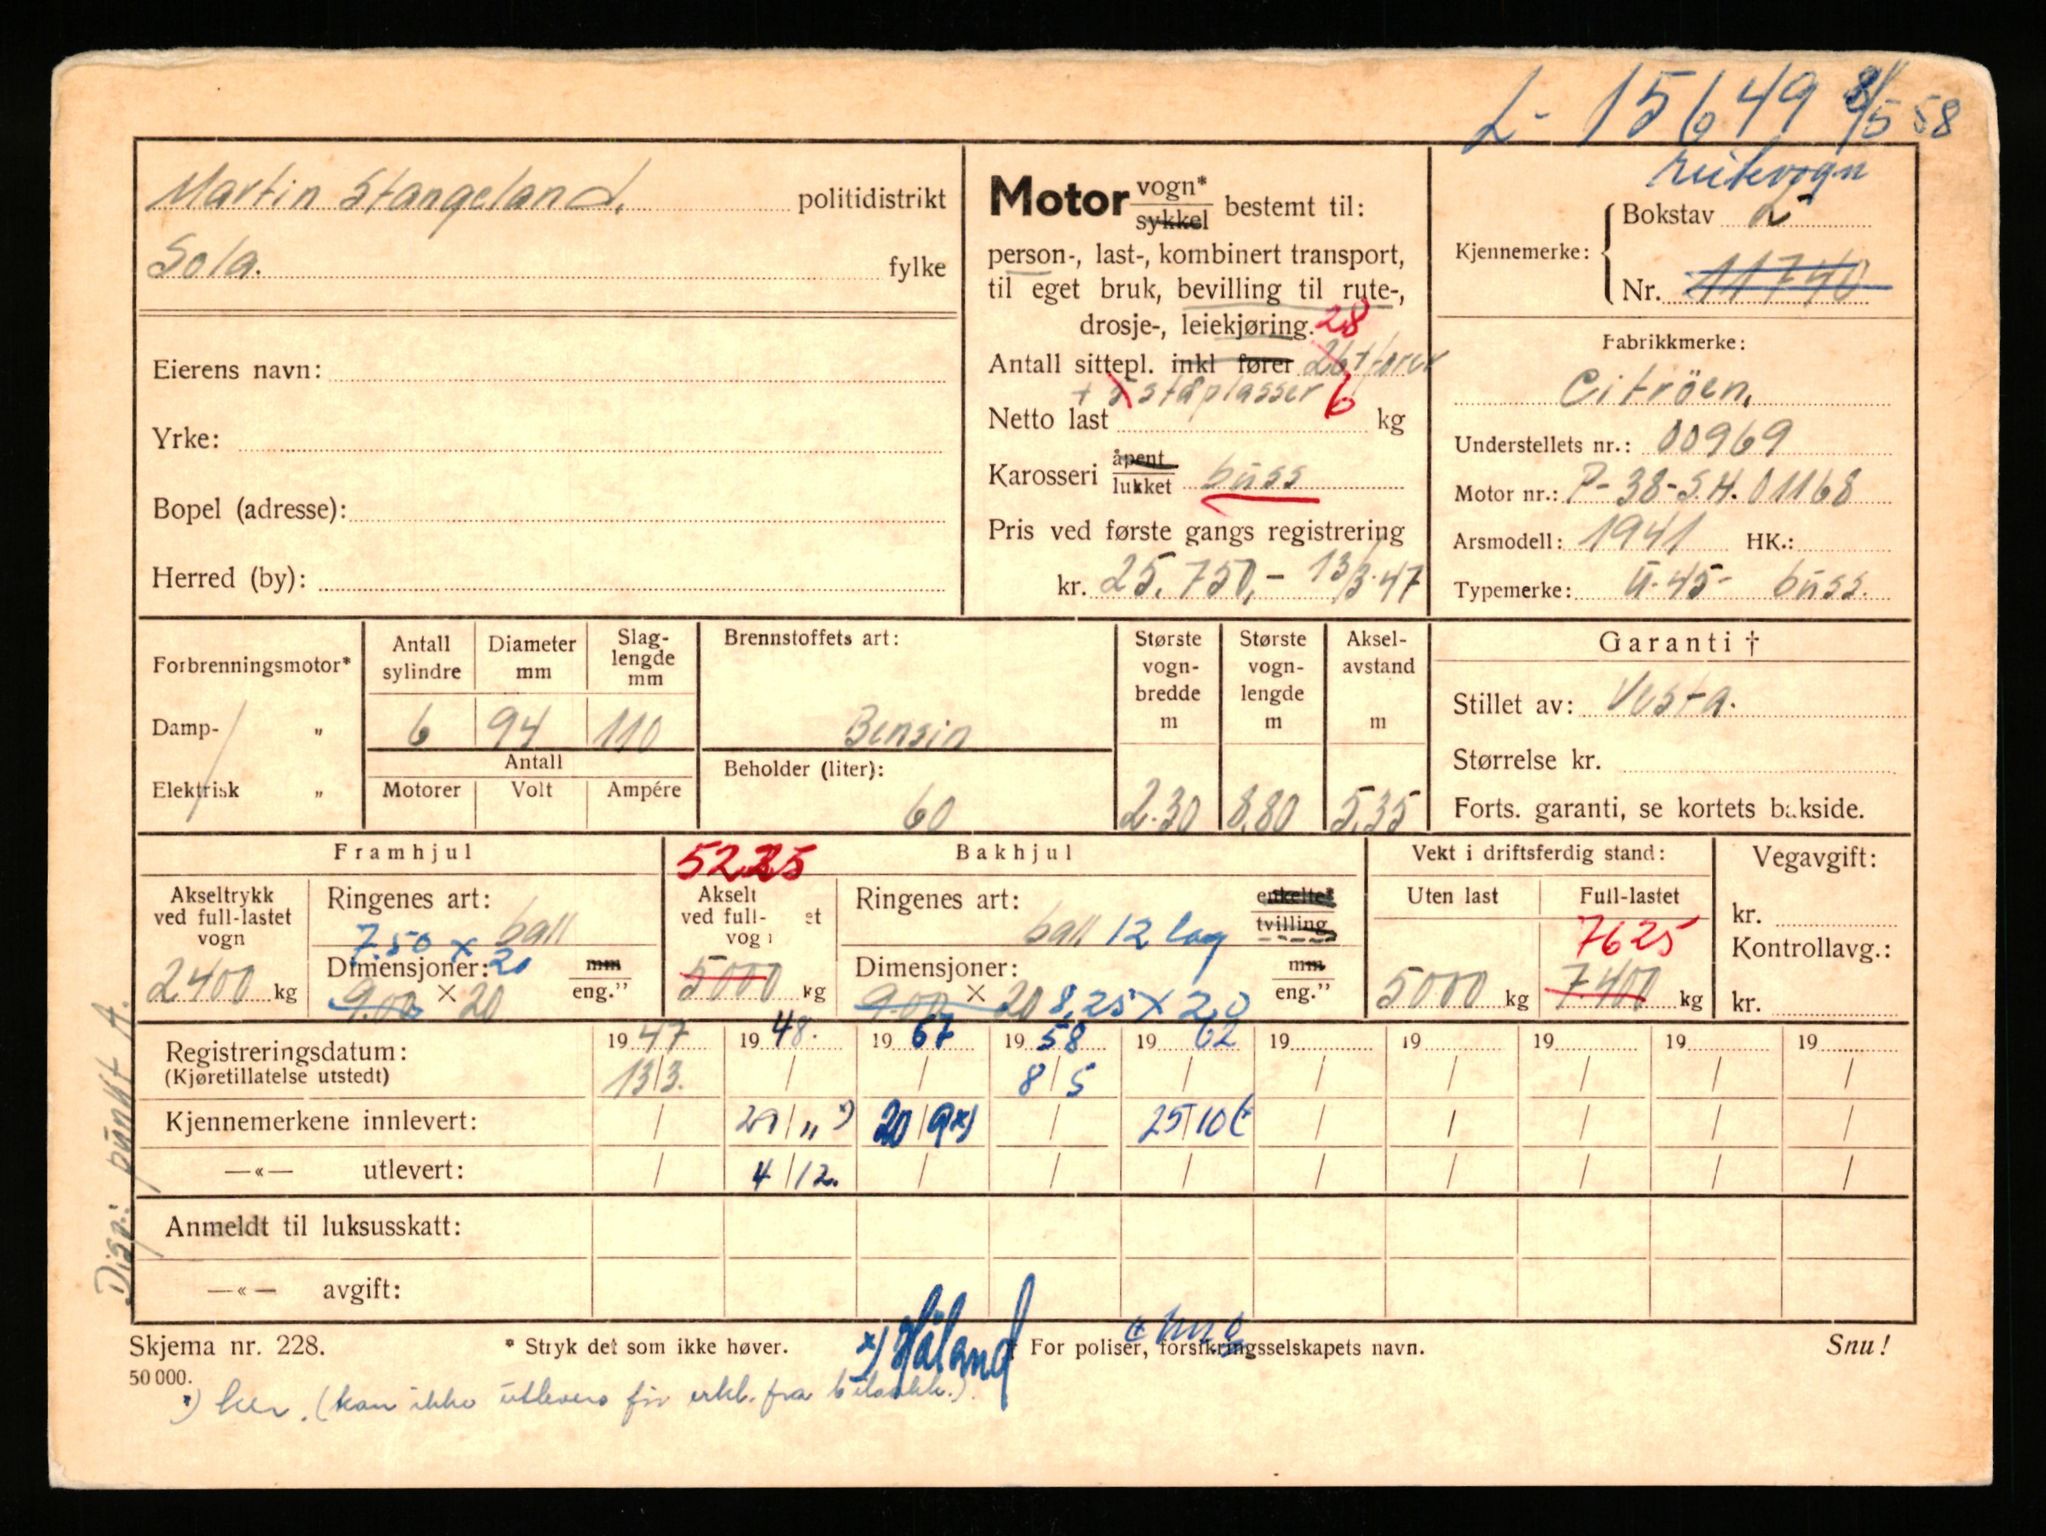 L- 15649 8/5 58
Martin Stangeland. politidistrikt
Sola. fylke
Eierens navn:
Yrke:
Bopel (adresse):
Herred (by):
Motor vogn* sykkel bestemt til:
person-, last-, kombinert transport,
til eget bruk, bevilling til rute-,
drosje-, leiekjøring. 28
Antall sittepl. inkl fører 26 + fører
+ 5 ståplasser 6
Netto last kg
Karosseri åpent lukket buss
Pris ved første gangs registrering
kr. 25.750,- 13/3-47
Kjennemerke: Bokstav L
Nr. 11740
Fabrikkmerke:
Citröen.
Understellets nr.: 00969
Motor nr.: P-38-S.H. 01168
Arsmodell: 1941 HK.:
Typemerke: U-45- buss.
Forbrenningsmotor*
Damp- „
Elektrisk „
Antall sylindre Diameter mm Slag-lengde mm
6 94 110
Antall
Motorer Volt Ampére
Brennstoffets art:
Bensin
Beholder (liter):
60
Største vogn-bredde m
2.30
Største vogn-lengde m
8,80
Aksel-avstand m
5,35
Garanti †
Stillet av: Vesta.
Størrelse kr.
Forts. garanti, se kortets bakside.
Framhjul
Akseltrykk ved full-lastet vogn
2400 kg
Ringenes art: ball
7.50 x 20
Dimensjoner: mm eng.”
9.00 × 20
5225 Bakhjul
Akselt
ved full- et
vog
5000 kg
Ringenes art: enkeltet tvilling
ball 12 lag
Dimensjoner: mm eng.”
9.00 × 20 8,25 x 20
Vekt i driftsferdig stand:
Uten last Full-lastet
7625
5000 kg 7.400 kg
Vegavgift:
kr.
Kontrollavg.:
kr.
Registreringsdatum: 1947 1948. 1967 1958 1962 19 19 19 19 19
(Kjøretillatelse utstedt) 13/3. / / 8/5 / / / / / /
Kjennemerkene innlevert: / / „ *) 20/9 x) / 25/10 / / / / /
—«— utlevert: / 4/12. / / / / / / / /
Anmeldt til luksusskatt:
—«— avgift:
Disp.: punkt A.
Skjema nr. 228. * Stryk det som ikke høver. † For poliser, forsikringsselskapets navn. Snu!
x) Håland
50 000.
*) (kan ikke utleveres før erkl. fra